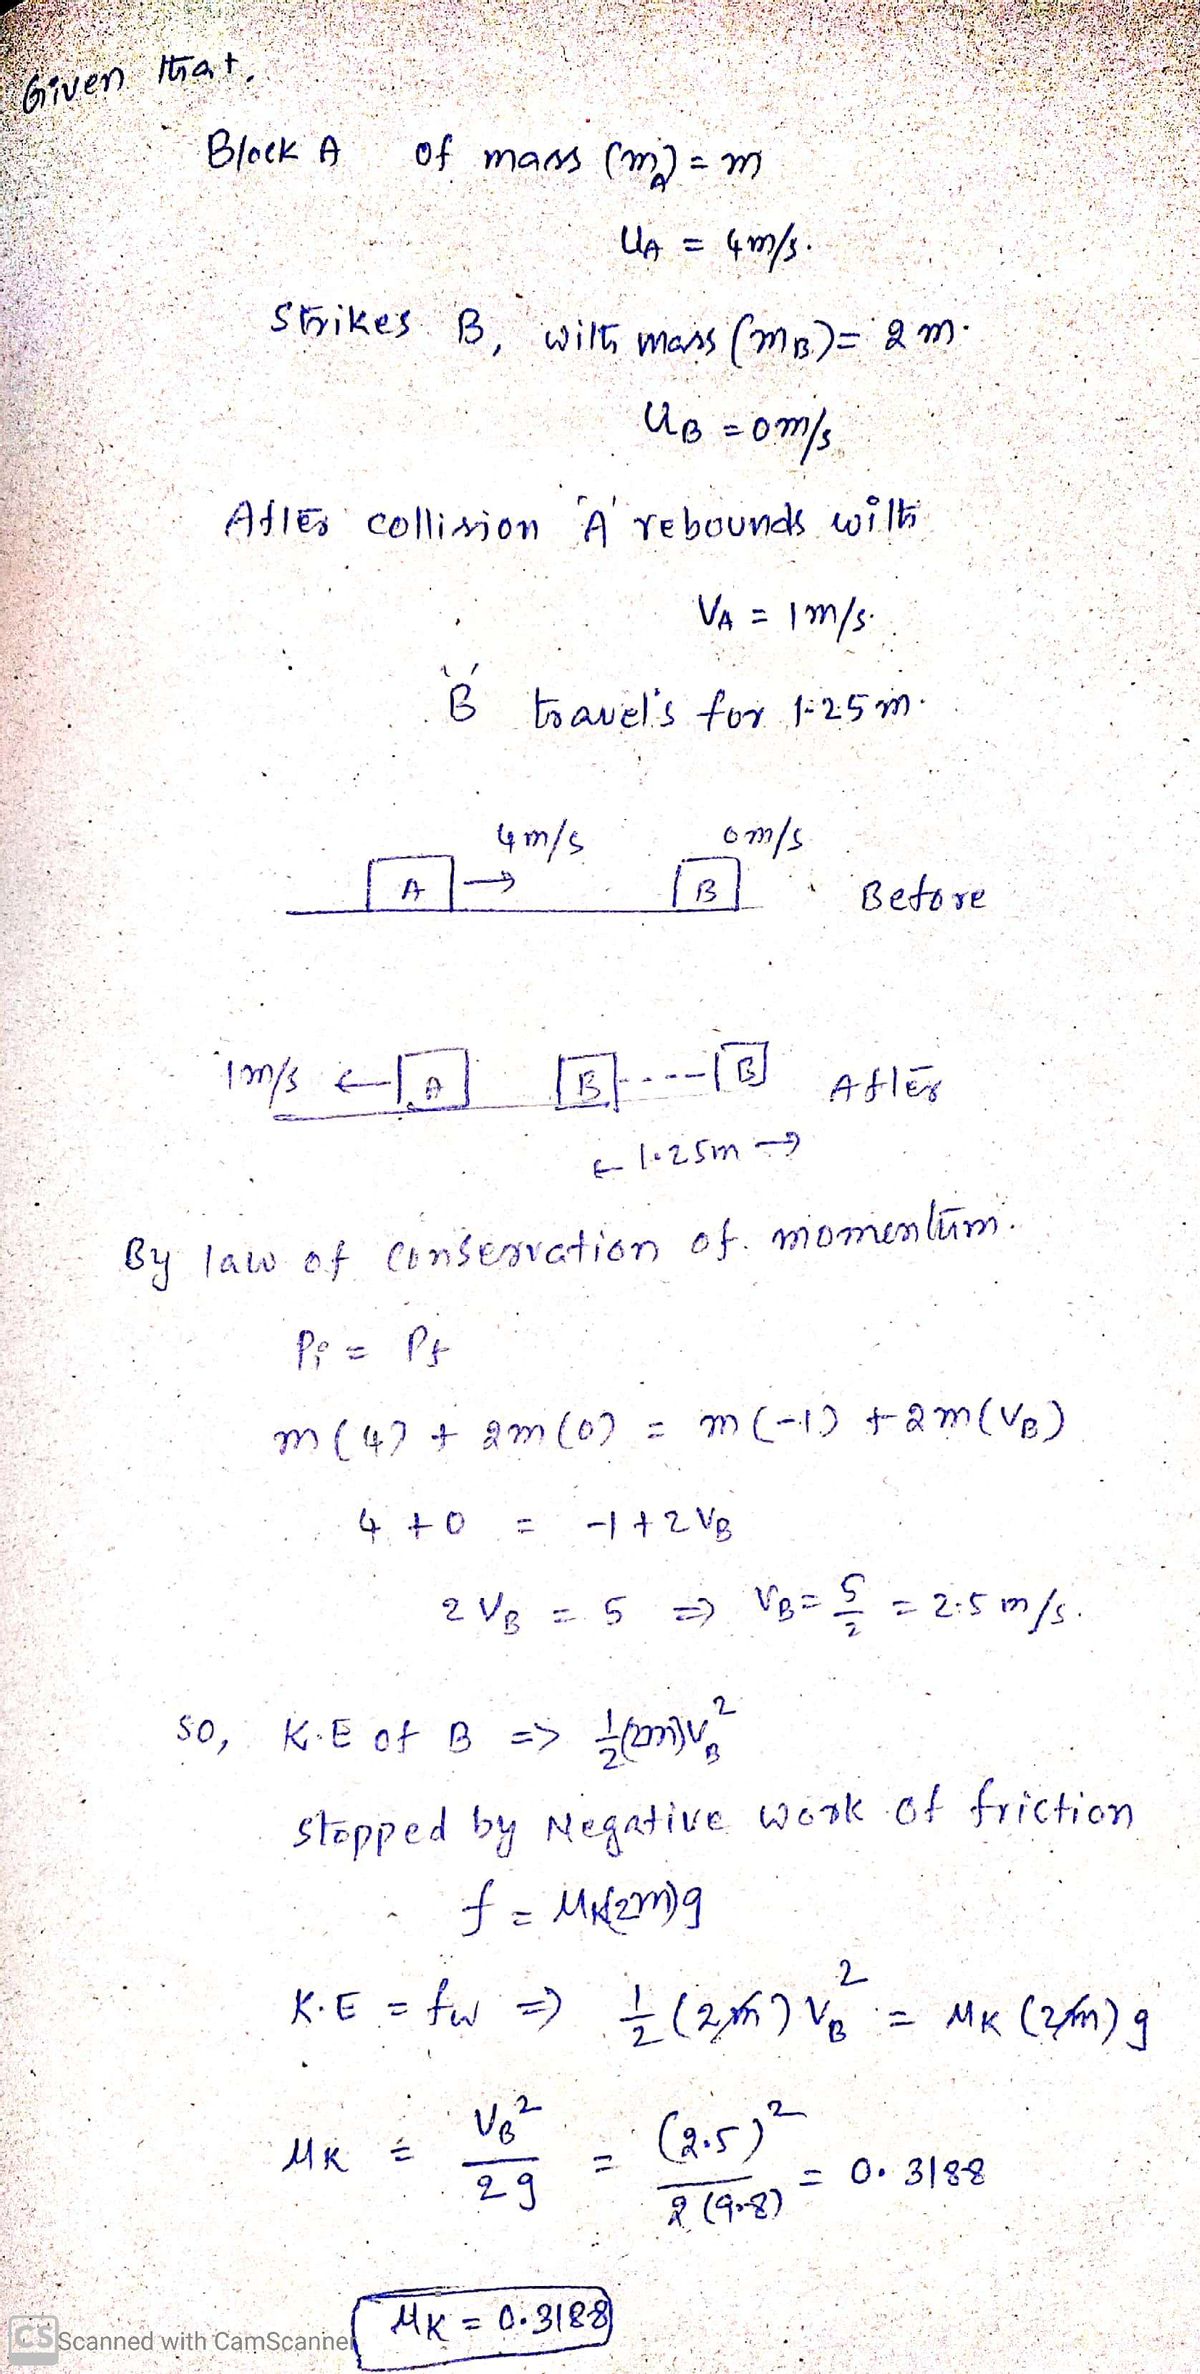 Given that.
Block A of mass (mA) = m
UA = 4m/s.
Strikes B, with mass (mB) = 2m.
UB = 0m/s
After collision 'A' rebounds with
VA = 1m/s.
'B' travel's for 1.25m.
4m/s 0m/s
A → B Before
1m/s ← A B ---- B After
← 1.25m →
By law of conservation of momentum.
Pi = Pf
m(4) + 2m(0) = m(-1) + 2m(VB)
4 + 0 = -1 + 2VB
2VB = 5 ⇒ VB = 5/2 = 2.5 m/s.
so, K.E of B => 1/2(2m)VB²
stopped by Negative work of friction
f = μK(2m)g
K.E = fw => 1/2(2m)VB² = μK(2m)g
μK = VB²/2g = (2.5)²/2(9.8) = 0.3188
μK = 0.3188
CS Scanned with CamScanner